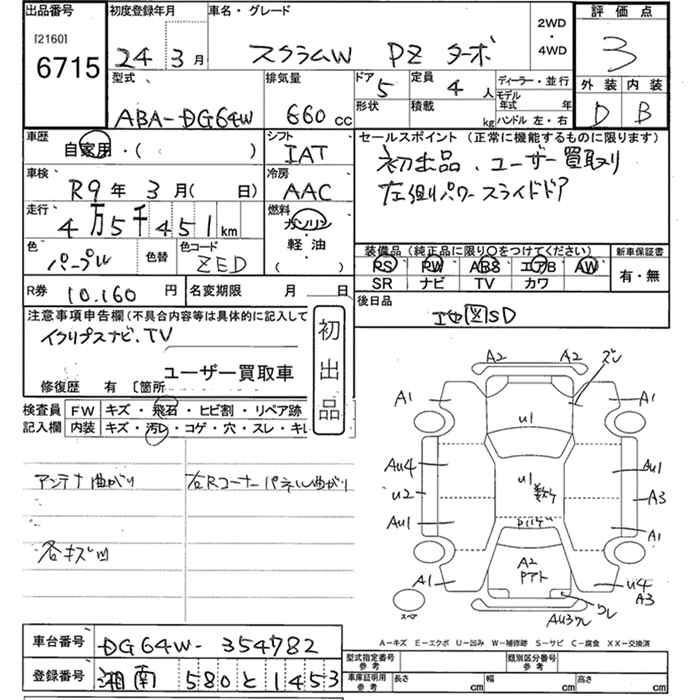 出品番号 初度登録年月 車名・グレード 評価点
[2160] 6715 24年3月 スクラムW PZ ターボ 2WD・4WD 3
型式 排気量 ドア 5 定員 4人 ディーラー・並行 外装 内装
ABA-DG64W 660cc 形状 積載 kg モデル年式 年 ハンドル 左・右 D B
車歴 自家用・( ) シフト IAT セールスポイント(正常に機能するものに限ります)
車検 R9年3月(日) 冷房 AAC 初出品、ユーザー買取り
走行 4万5千451km 燃料 ガソリン・軽油( ) 左側パワースライドドア
色 パープル 色替 色コード ZED 装備品(純正品に限り○をつけてください) 新車保証書
PS PW ABS エアB AW 有・無
SR ナビ TV カワ
R券 10,160円 名変期限 月 日 後日品
注意事項申告欄(不具合内容等は具体的に記入して 地図SD
イクリプスナビ、TV
ユーザー買取車 初出品
修復歴 有 〔箇所
検査員 FW キズ・飛石・ヒビ割・リペア跡
記入欄 内装 キズ・汚レ・コゲ・穴・スレ・キレ
アンテナ曲がり 右Rコーナーパネル曲がり
各キズ凹
A2 A2 ズレ
A1 U1 A1
Au4 U1 数ヶ Au1
u2 A3
Au1 A1
A2 Pアト
A1 U4 A3
スペア Au3 ワレ ワレ
A-キズ E-エクボ U-凹み W-補修跡 S-サビ C-腐食 XX-交換済
車台番号 DG64W-354782 型式指定番号 参考 類別区分番号 参考
登録番号 湘南 580 と 1453 車庫証明用 参考 長さ cm 幅 cm 高さ cm